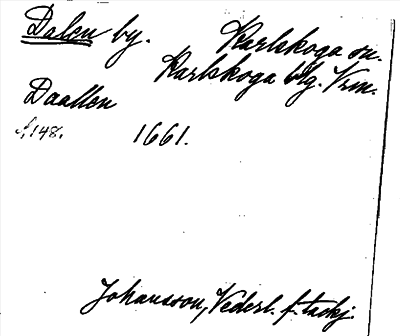 Dalen by. Karlskoga sn.
Karlskoga blg. Vrm.
Daallen
f. 148. 1661.
Johansson, Vederl. f. tackj.